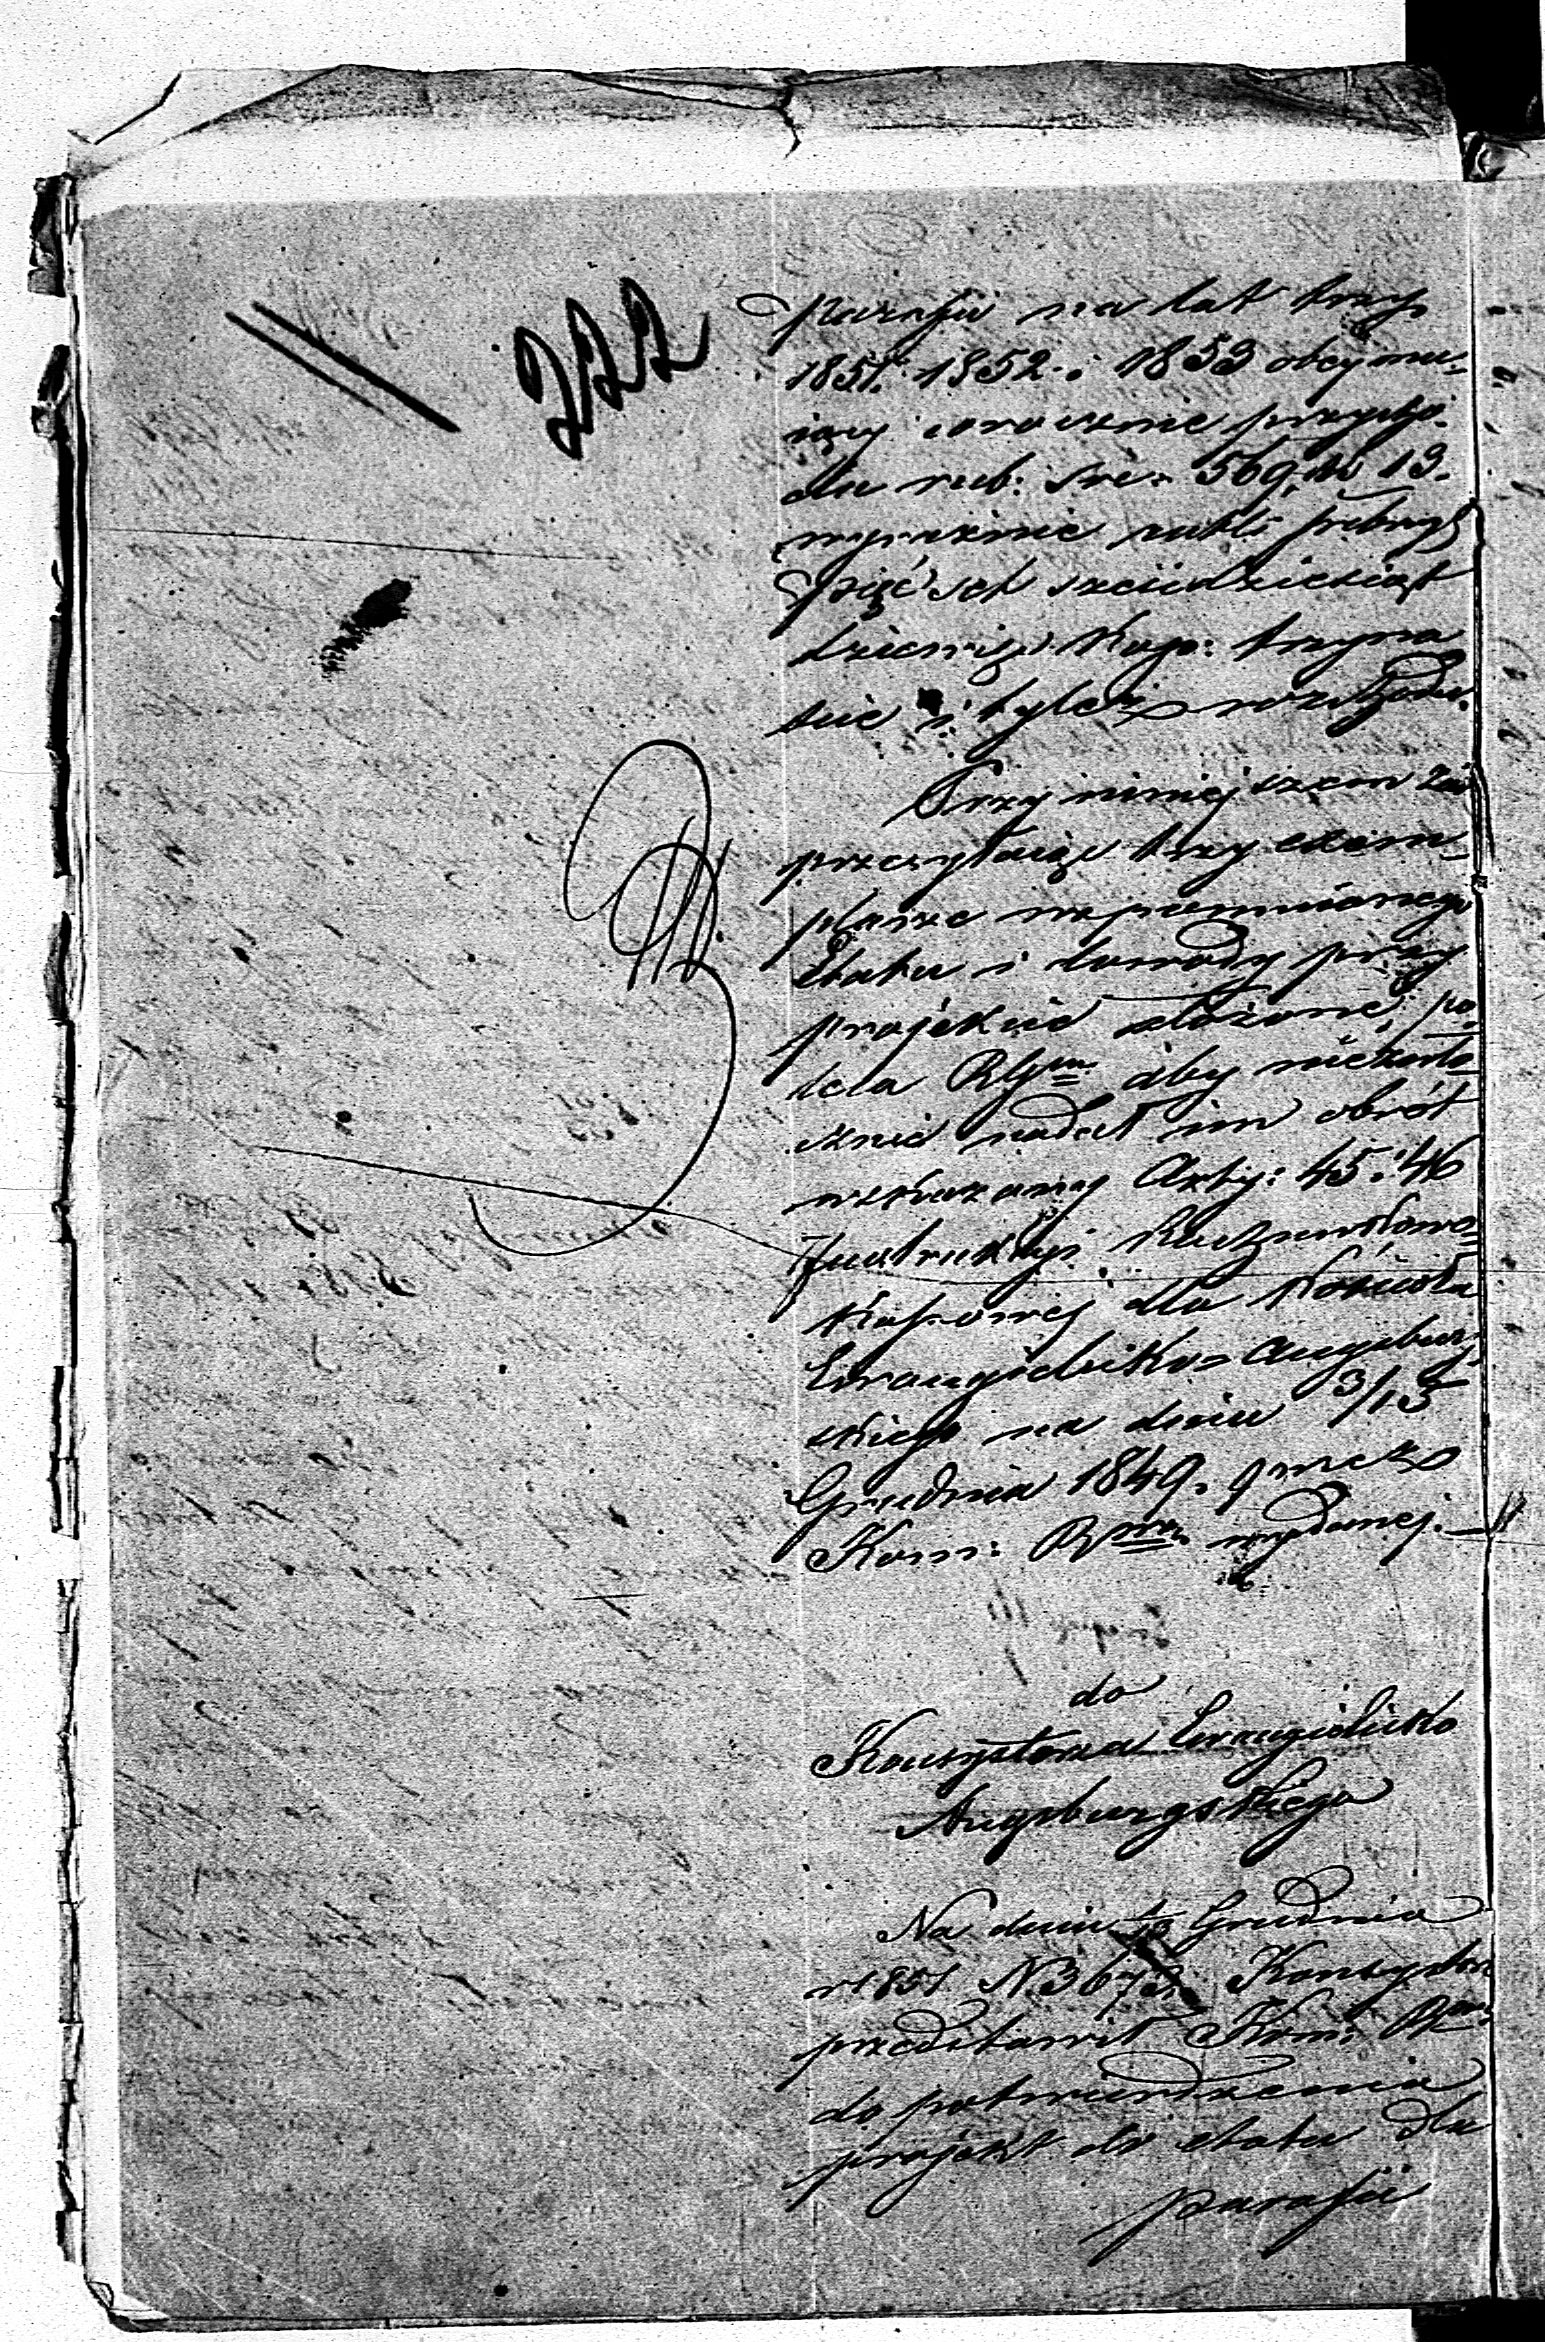 222
parafii na lat trzy
1851. 1852. i 1853 obejmu-
iący corocznie przycho-
du rub: sre: 569, k. 13.
wyraźnie rubli srebrnych
pięćset sześćdziesiąt
dziewięć kop: trzyna-
ście i tyleż rozchodu.
Przy niniejszem
przesyłając trzy exem-
plarze wspomnionego
Etatu i dowody przy
projekcie złożone, po-
leca RGm aby niezwło-
cznie nadał im obrót
wskazany Arty: 45 i 46
Instrukcyi Rachunkowo
Kassowej dla Kościoła
Ewangielicko-Augsbur-
skiego na dniu 3/15
Grudnia 1849 przez
Kom: Rm wydanej.
do
Konsystorza Ewangielicko
Augsburgskiego
Na dniu Grudnia
r 1851 N 3673. Konsystorz
przedstawił Kom: R
do potwierdzenia
projekt do etatu dla
parafii